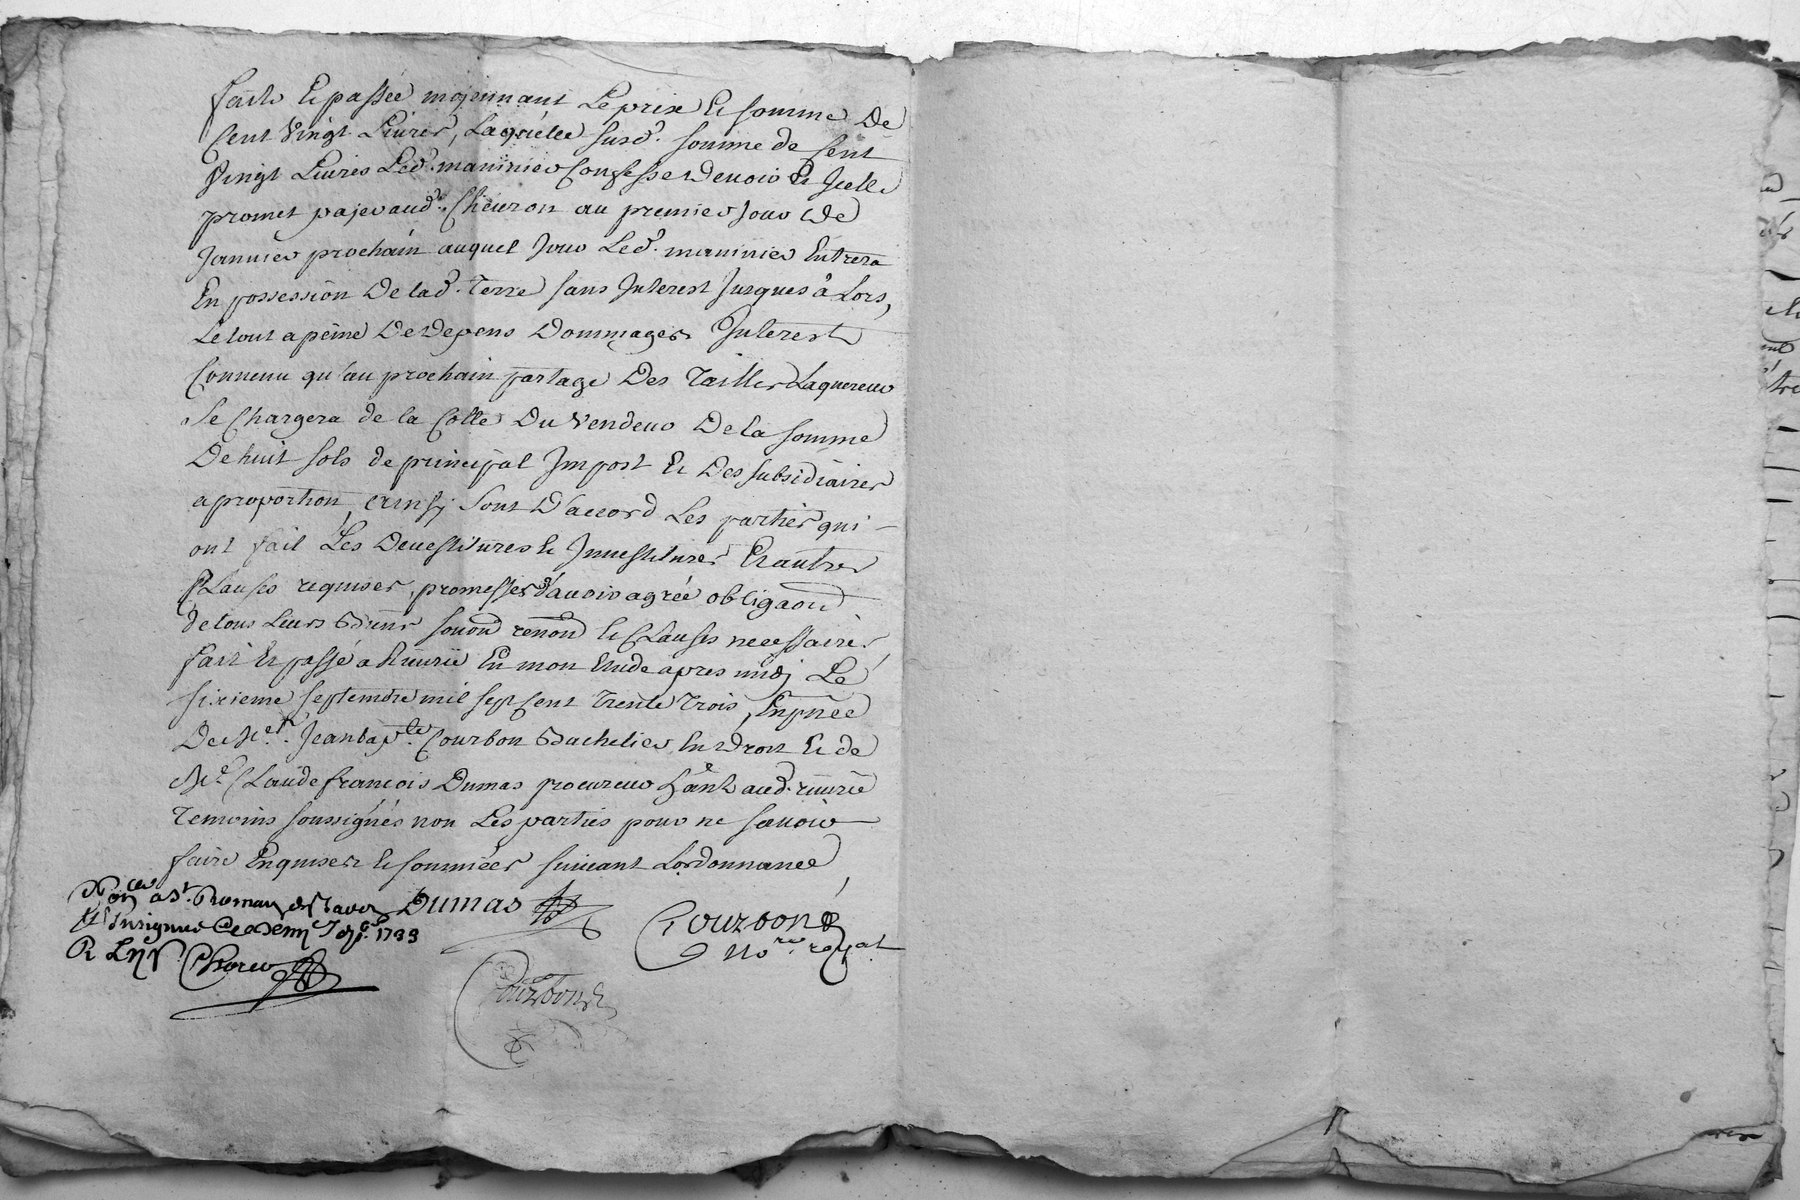 faite Et passée mojennant Le prix Et somme De
Cent Vingt Liures, Laquelle susd. somme de Cent
Vingt Liures Led. marinier Confesse Deuoir Et Jcelle
promet pajer aud. Cheuron au premier Jour De
Januier prochain auquel Jour Led. marinier Entrera
En possession De lad. Terre sans Interest Jusques à Lors,
Le tout a peine De Depens Dommages Interest
Conuenu qu'au prochain partage Des Tailles Laquereur
Se Chargera de la Cotte Du Vendeur De la somme
De huit sols de principal Impost Et Des subsidiaires
a proportion, Sont D'accord Les parties qui
ont fait Les Deuestitures Et Inuestitures Et autres
Clauses requises, promesses d'auoir agrée obligaon
de tous Leurs Biens soumon renon Et Clauses necessaires,
fait Et passé a Riuirie En mon Etude apres midj Le
sixieme septembre mil sept Cent Trente Trois, En pnce
De Me. Jean bapte. Courbon Bachelier En Droit Et de
Me. Claude françois Dumas procureur aud. riuirie
Temoins soussignés non Les parties pour ne sauoir
faire Enquises Et sommées suiuant L'ordonnance,
Dumas
Courbon
No.re royal
Courbon
a St. Roman
Insignué 7bre 1733
R